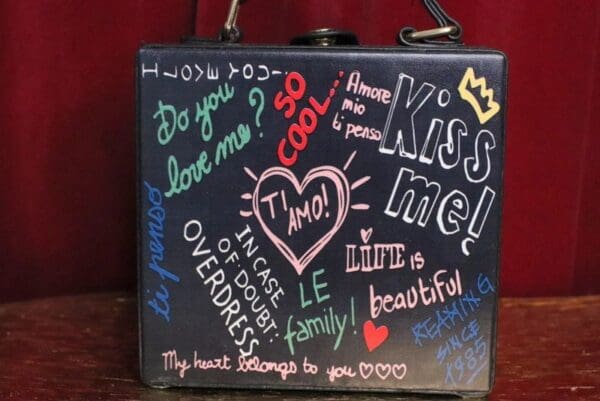 I LOVE YOU!
Do you
love me?
SO
COOL...
Amore
mio
ti penso
Kiss
me!
ti penso
TI
AMO!
IN CASE
OF DOUBT:
OVERDRESS
LiFE is
beautiful
LE
family!
SINCE
1985
My heart belongs to you